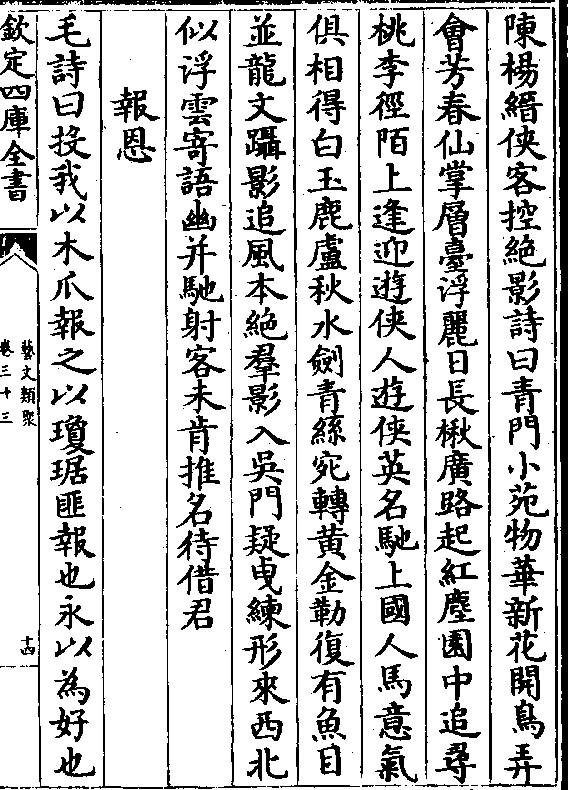 陳楊縉俠客控絶影詩曰青門小苑物華新花開鳥弄
會芳春仙掌層臺浮麗日長楸廣路起紅塵園中追尋
桃李徑陌上逢迎遊俠人遊俠英名馳上國人馬意氣
俱相得白玉鹿盧秋水劍青絲宛轉黄金勒復有魚目
並龍文躡影追風本絶羣影入吳門疑曳練形來西北
似浮雲寄語幽并馳射客未肯推名待借君
報恩
毛詩曰投我以木爪報之以瓊琚匪報也永以為好也
欽定四庫全書
藝文類聚
卷三十三
十四